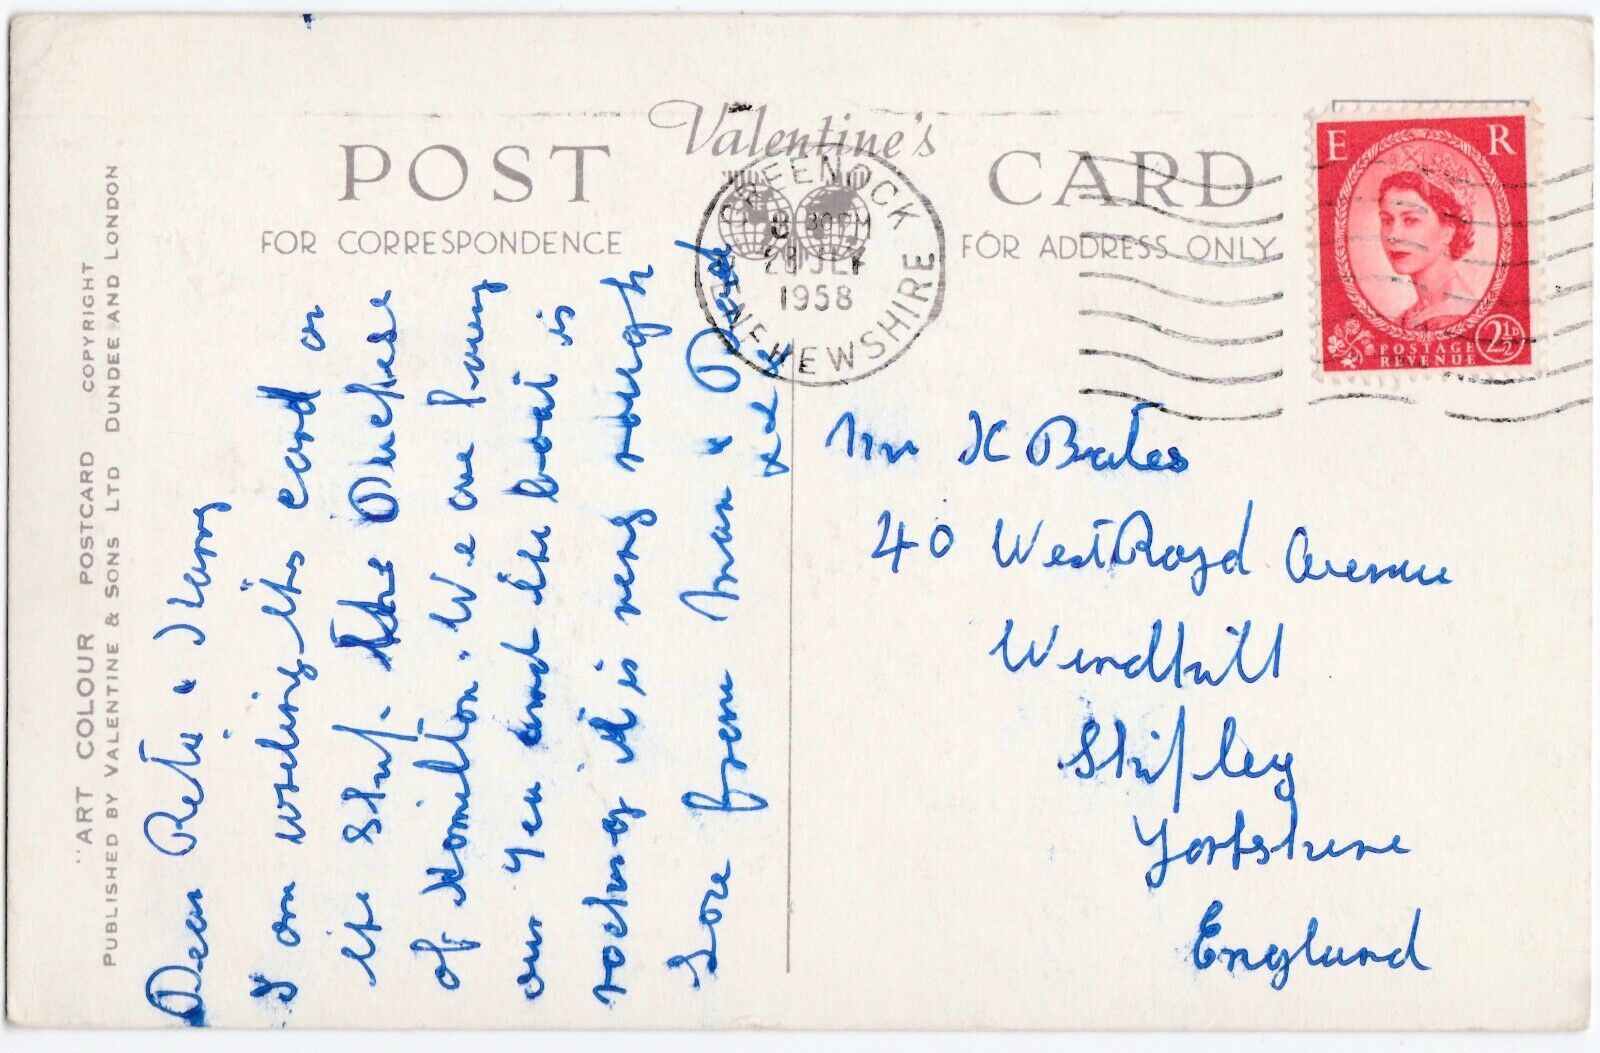 Valentine's
POST CARD
FOR CORRESPONDENCE
FOR ADDRESS ONLY
GREENOCK
8 30PM
1958
RENFREWSHIRE
E R
POSTAGE
REVENUE
2½D
"ART COLOUR POSTCARD COPYRIGHT
PUBLISHED BY VALENTINE & SONS LTD DUNDEE AND LONDON
Dear Reta &
I am writing this card on
the ship. the Duchess
of Hamilton. We are having
our Tea and the boat is
rocking it is very rough
Love from Mam & Dad
xxx
Mr K Bates
40 WestRoyd Avenue
Windhill
Shipley
Yorkshire
England